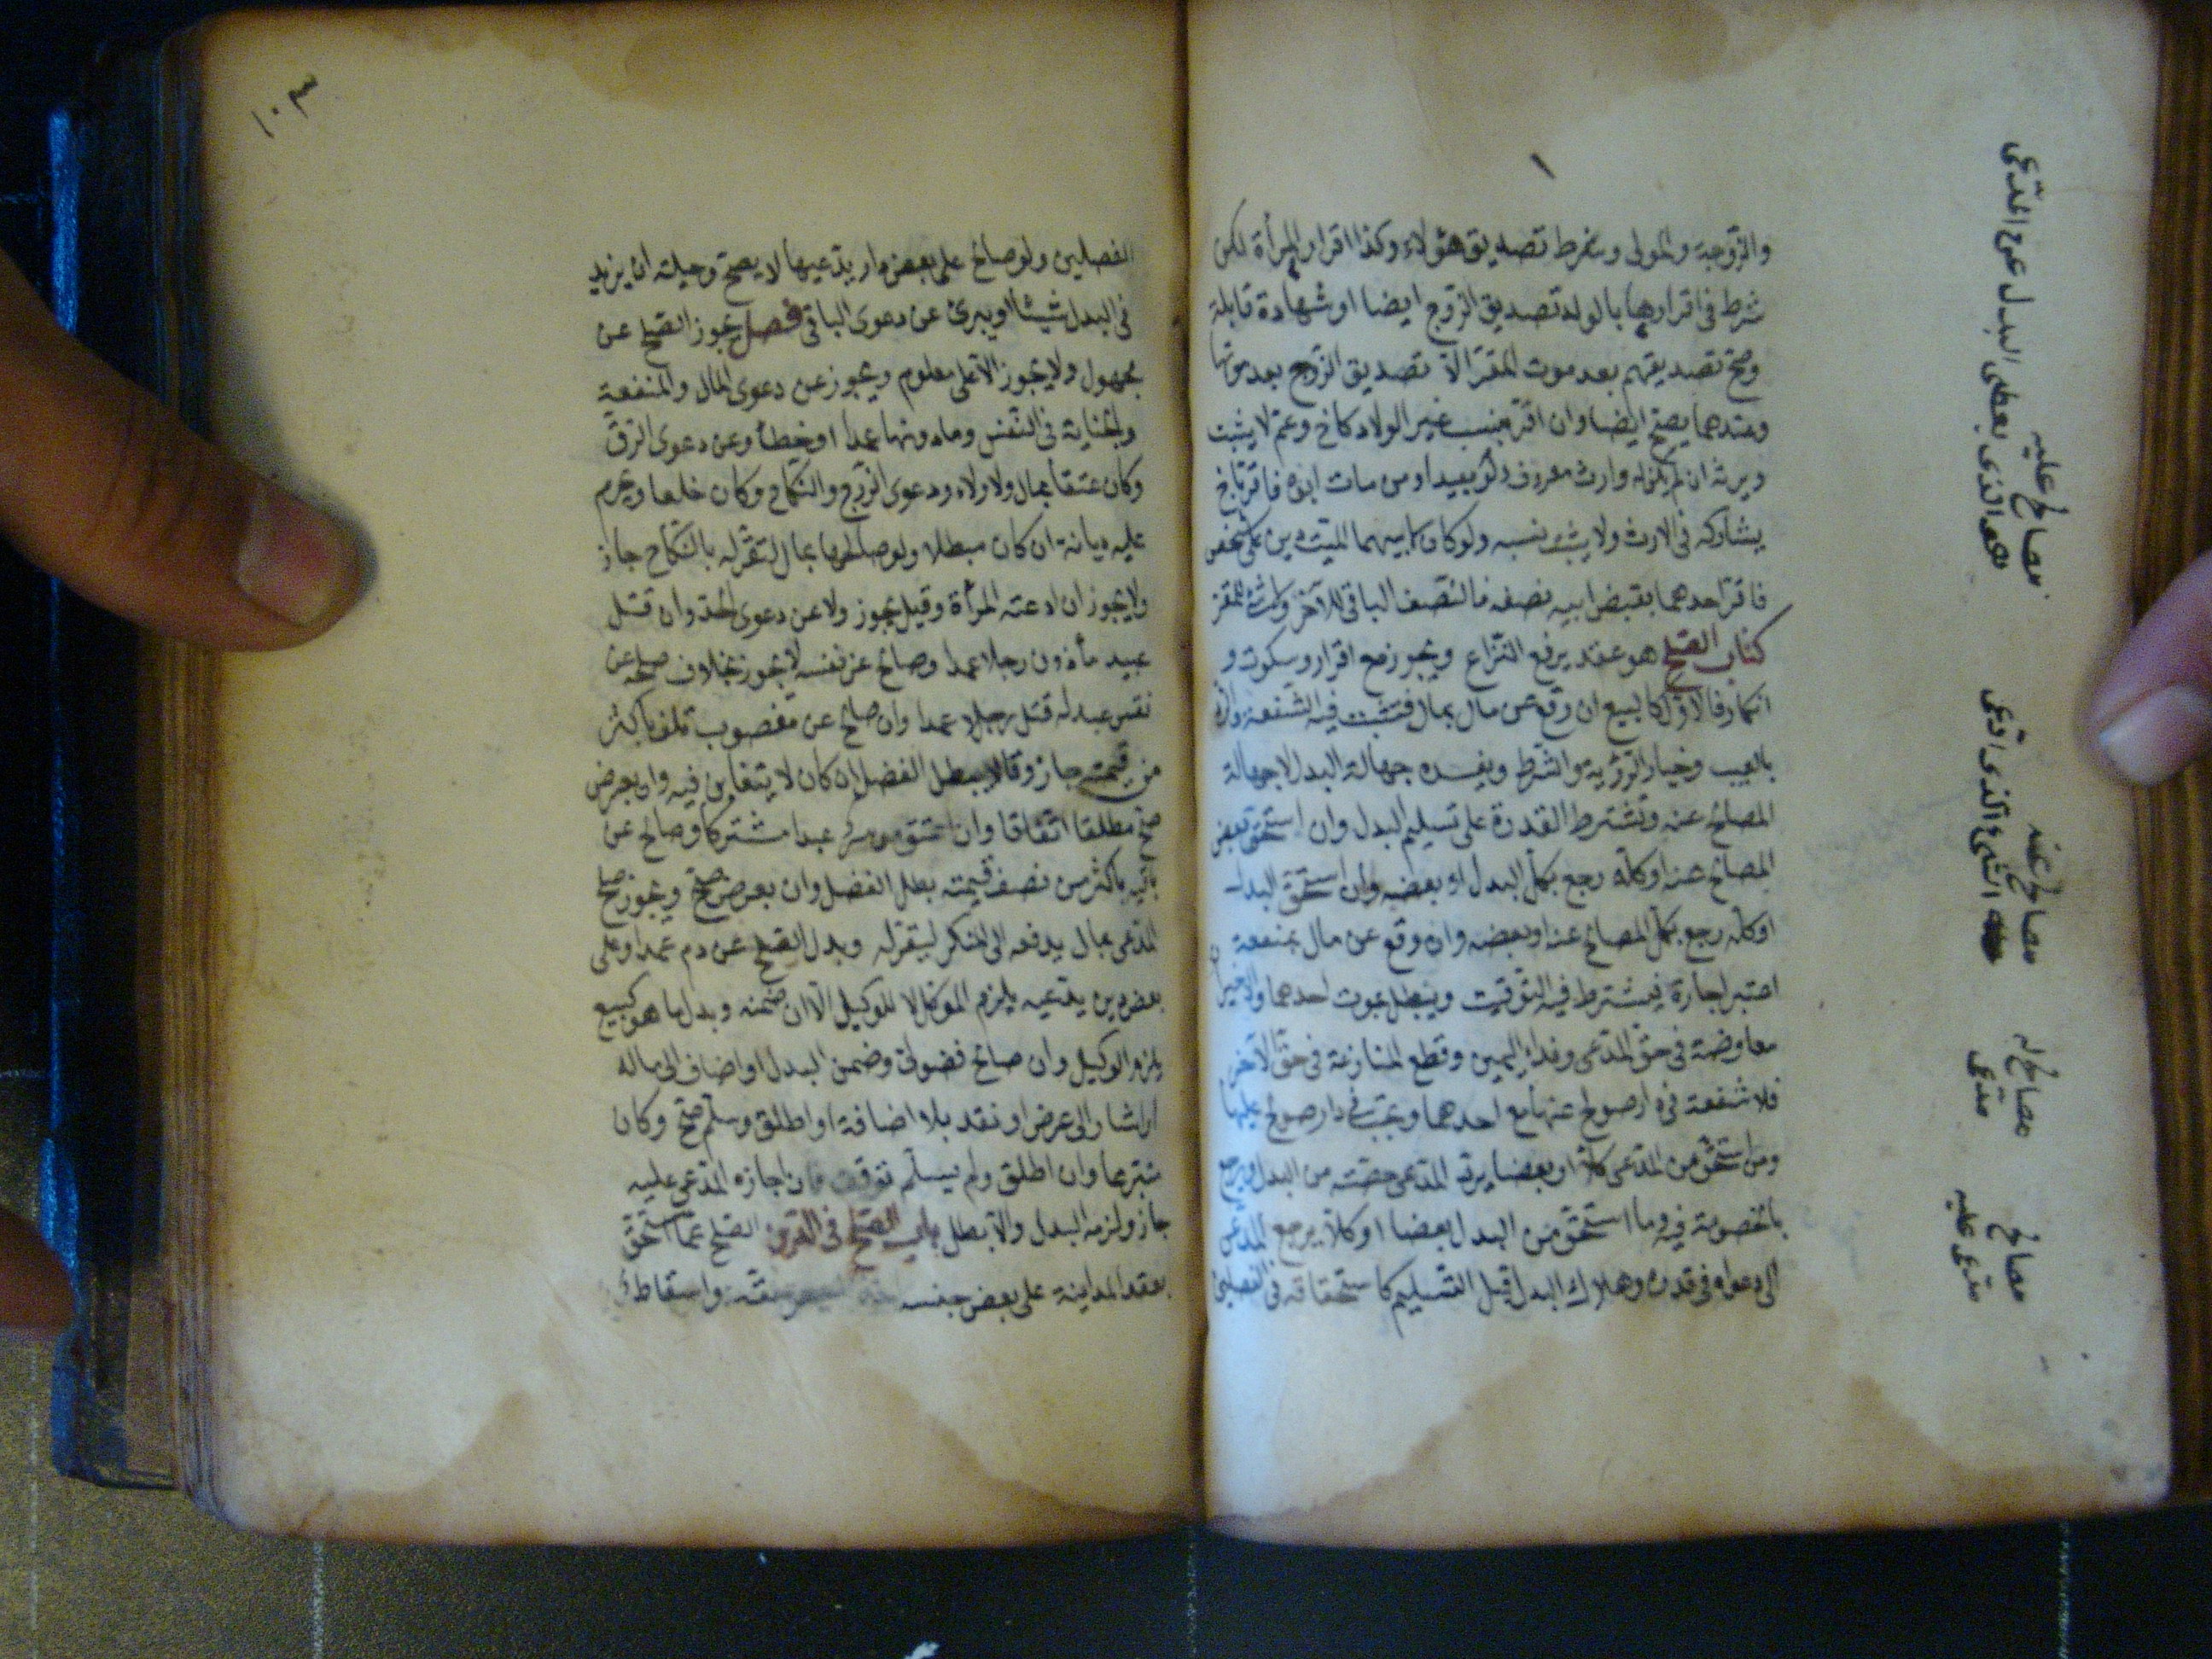 والزوجة والمولى وشرط تصديق هؤلاء وكذا اقرار المرأة لكن
شرط في اقرارها بالولد تصديق الزوج ايضا او شهادة قابلة
وصح تصديقهم بعد موت المقر الا تصديق الزوج بعد موتها
وعندهما يصح ايضا وان اقر بنسب غير الولاد كاخ وعم لا يثبت
ويرثه ان لم يكن له وارث معروف ولو بعيدا ومن مات ابوه فاقر باخ
يشاركه في الارث ولا يثبت نسبه ولو كان لابيهما الميت دين على شخص
فاقر احدهما بقبض ابيه نصفه فالنصف الباقي للآخر
كتاب الصلح هو عقد يرفع النزاع ويجوز مع اقرار وسكوت و
انكار فالاول كالبيع ان وقع عن مال بمال فتثبت فيه الشفعة والرد
بالعيب وخيار الرؤية والشرط ويفسده جهالة البدل لا جهالة
المصالح عنه وتشترط القدرة على تسليم البدل وان استحق بعض
المصالح عنه او كله رجع بكل البدل او بعضه وان استحق البدل
او كله رجع بكل المصالح عنه او بعضه وان وقع عن مال بمنفعة
اعتبر اجارة فيشترط فيه التوقيت ويبطل بموت احدهما والاخيران
معاوضة في حق المدعي وفداء اليمين وقطع المنازعة في حق الآخر
فلا شفعة في دار صولح عنها مع احدهما وتجب في دار صولح عليها
وما استحق من المدعى كلا او بعضا يرد المدعي حصته من البدل ويرجع
بالخصومة فيه وما استحق من البدل بعضا او كلا يرجع المدعي
الى دعواه في قدره وهلاك البدل قبل التسليم كاستحقاقه في الفصلين
مصالح عليه
هو الذي يعطى البدل عن المدعى
مصالح عنه
الشيء الذي ادعى
مصالح له
مدعي
مصالح
مدعى عليه
١٠٣
الفصلين ولو صالح على بعض دار يدعيها لا يصح وحيلته ان يزيد
في البدل شيئا او يبرئ عن دعوى الباقي فصل يجوز الصلح عن
مجهول ولا يجوز الا على معلوم ويجوز عن دعوى المال والمنفعة
والجناية في النفس وما دونها عمدا او خطأ وعن دعوى الرق
وكان عتقا بمال ولا ولاء ودعوى الزوج والنكاح وكان خلعا ويحرم
عليه ديانة ان كان مبطلا ولو صالحها بمال لتقر له بالنكاح جاز
ولا يجوز ان ادعته المرأة وقيل يجوز ولا عن دعوى الحد وان قتل
عبد مأذون رجلا عمدا وصالح عن نفسه لا يجوز بخلاف صلحه عن
نفس عبد له قتل رجلا عمدا وان صالح عن مغصوب تلف باكثر
من قيمته جاز وقالا يبطل الفضل ان كان لا يتغابن فيه وان بعرض
صح مطلقا اتفاقا وان اعتق موسر عبدا مشتركا وصالح عن
باقيه باكثر من نصف قيمته بطل الفضل وان بعرض صح ويجوز صلح
المدعي بمال يدفعه الى المنكر ليقر له وبدل الصلح عن دم عمد او على
بعض دين يدعيه يلزم الموكل لا الوكيل الا ان ضمنه وبدل ما هو كبيع
يلزم الوكيل وان صالح فضولي وضمن البدل او اضاف الى ماله
او اشار الى عرض او نقد بلا اضافة او اطلق وسلم صح وكان
متبرعا وان اطلق ولم يسلم توقف فان اجازه المدعى عليه
جاز ولزمه البدل والا بطل باب الصلح في الدين الصلح عما استحق
بعقد المداينة على بعض جنسه واسقاط